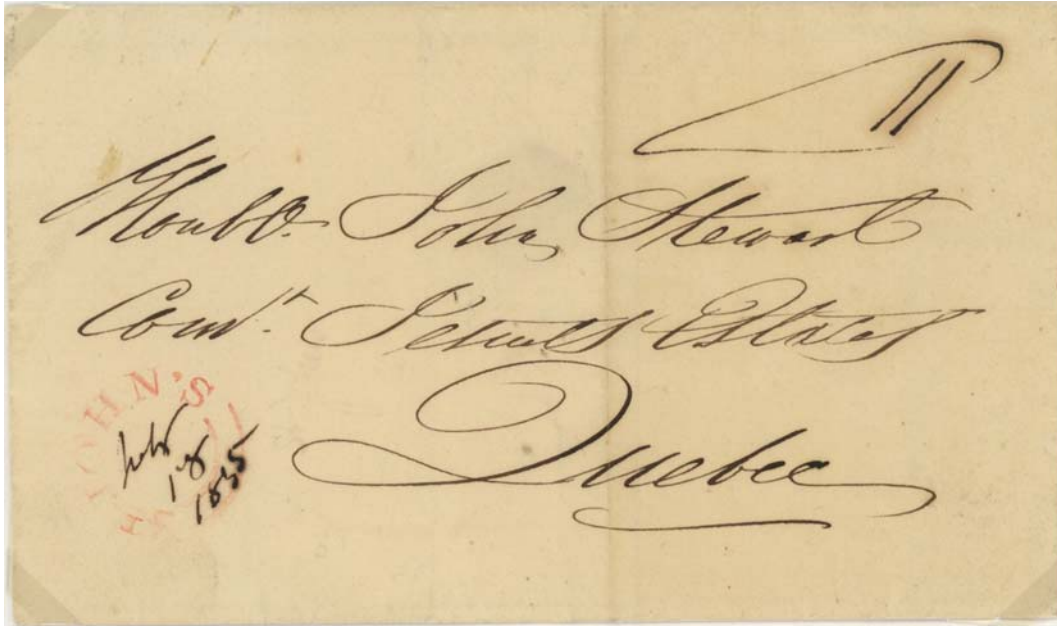 11
Honble. John Stewart
Comr. Jesuits Estates
Quebec
JOHN'S
18
1835